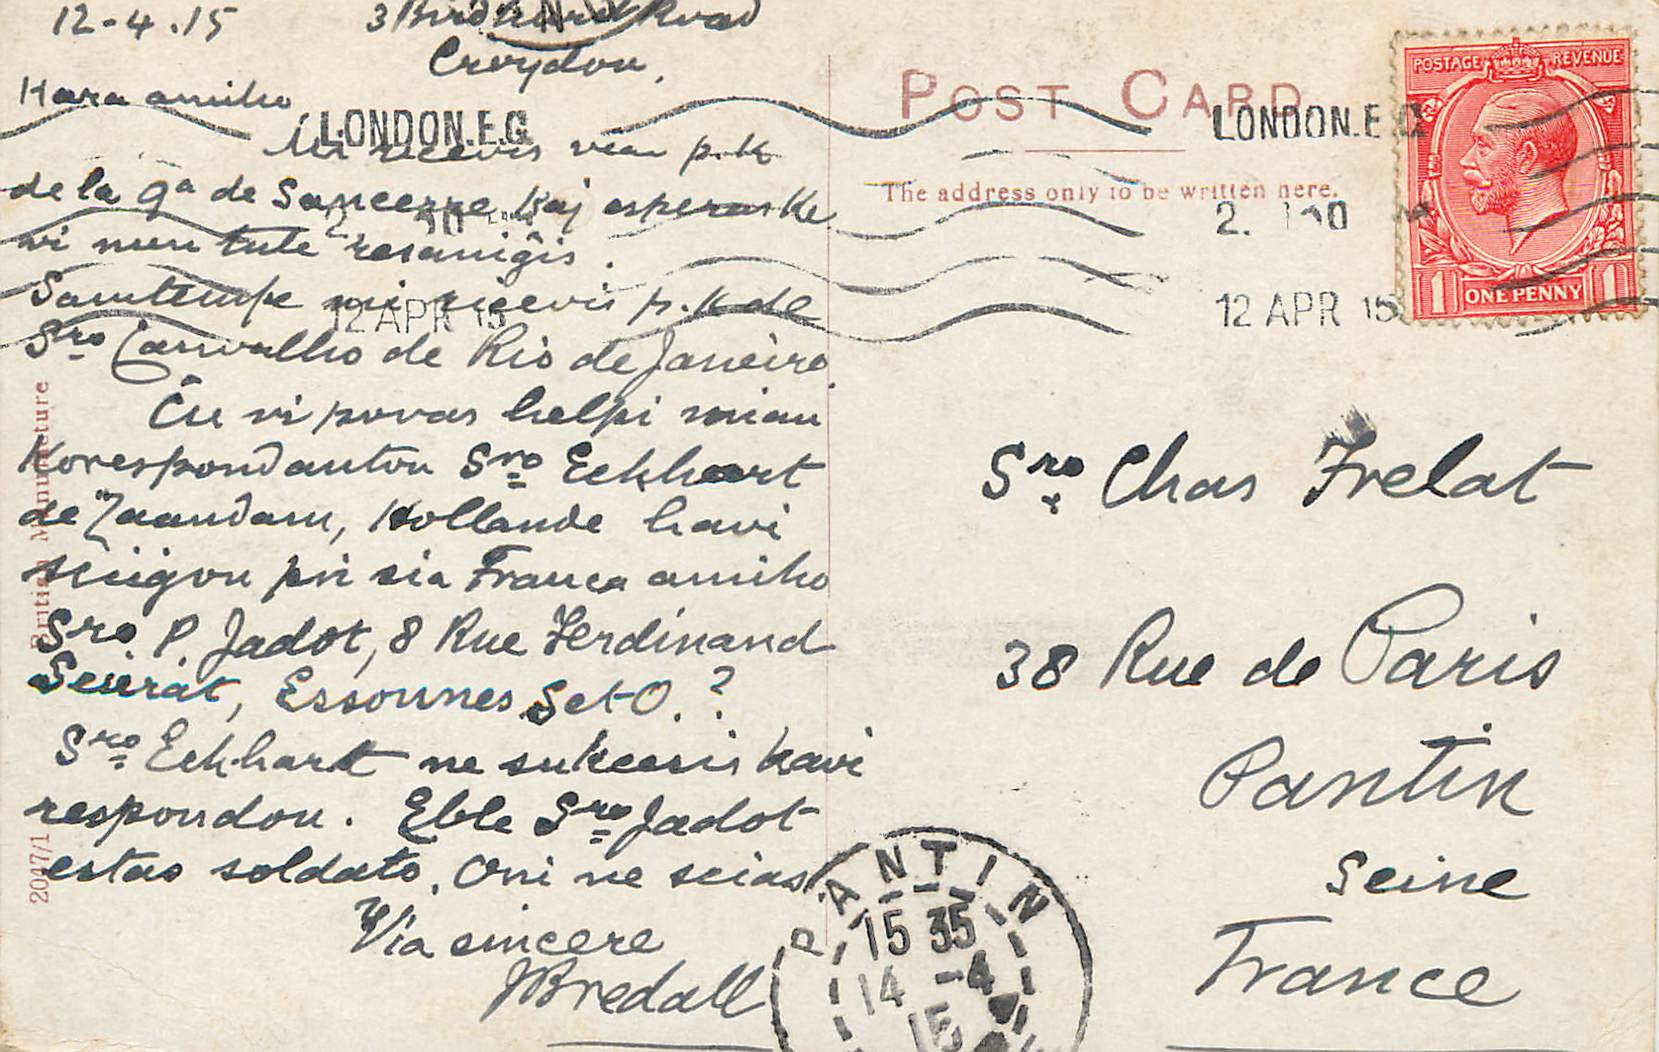 12-4.15
3 Birdhurst Road
Croydon,
Kara amiko
Mi ricevis vian p.k
de la 9ª de Sancerre kaj esperas ke
vi nun tute resaniĝis.
Samtempe mi ricevis p.k de
Sro Carvalho de Rio de Janeiro.
Ĉu vi povas helpi mian
Korespondanton Sro Eekhart
de Zaandam, Hollande havi
sciigon pri sia Franca amiko
Sro. P. Jadot, 8 Rue Ferdinand
Seurat, Essonnes Set-O. ?
Sro Eekhart ne sukcesis havi
respondon. Eble Sro Jadot
estas soldato. Oni ne scias
Via sincere
JBredall
British Manufacture
2047/1
LONDON.E.C
12 APR 15
POST CARD
The address only to be written here.
LONDON.E
12 APR 15
POSTAGE REVENUE
1 ONE PENNY 1
Sro Chas Frelat
38 Rue de Paris
Pantin
Seine
France
PANTIN
15 35
14 -4
15